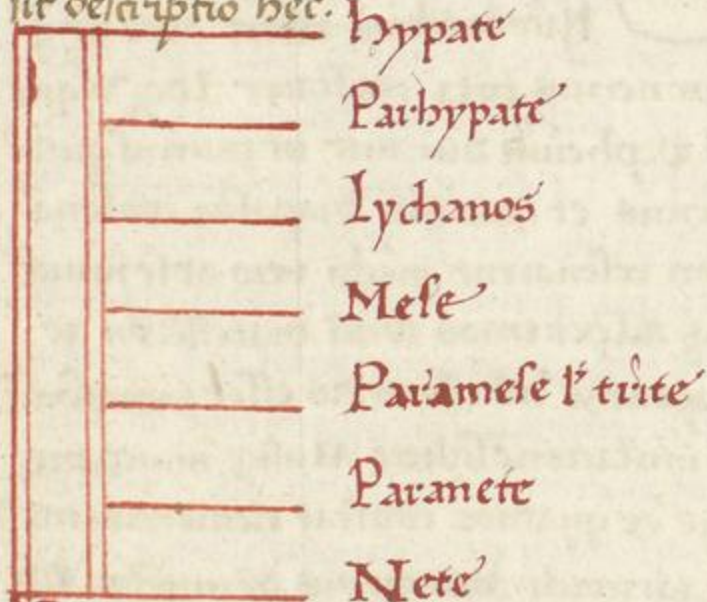 sit descriptio hec.
hypate
Parhypate
Lychanos
Mese
Paramese ł trite
Paranete
Nete